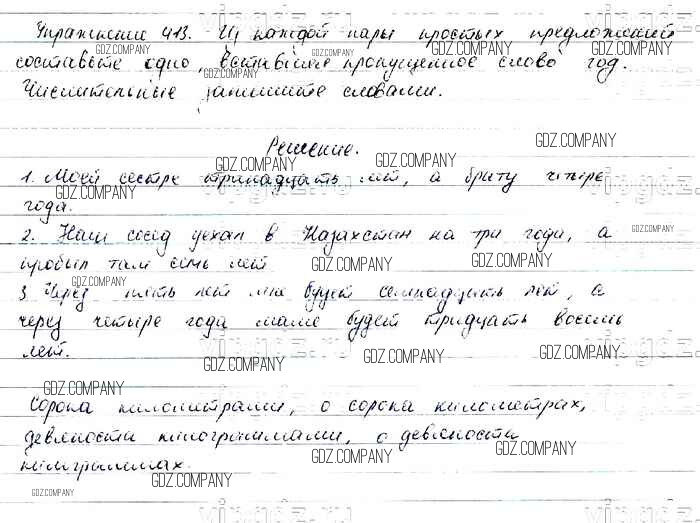 Упражнение 413. Из каждой пары простых предложений
составьте одно, вставляя пропущенное слово год.
Числительные запишите словами.
Решение.
1. Моей сестре тринадцать лет, а брату четыре
года.
2. Наш сосед уехал в Казахстан на три года, а
пробыл там семь лет
3 Через пять лет мне будет семнадцать лет, а
через четыре года маме будет тридцать восемь
лет.
Сорока километрами, о сорока километрах,
девяноста килограммами, о девяноста
килограммах.